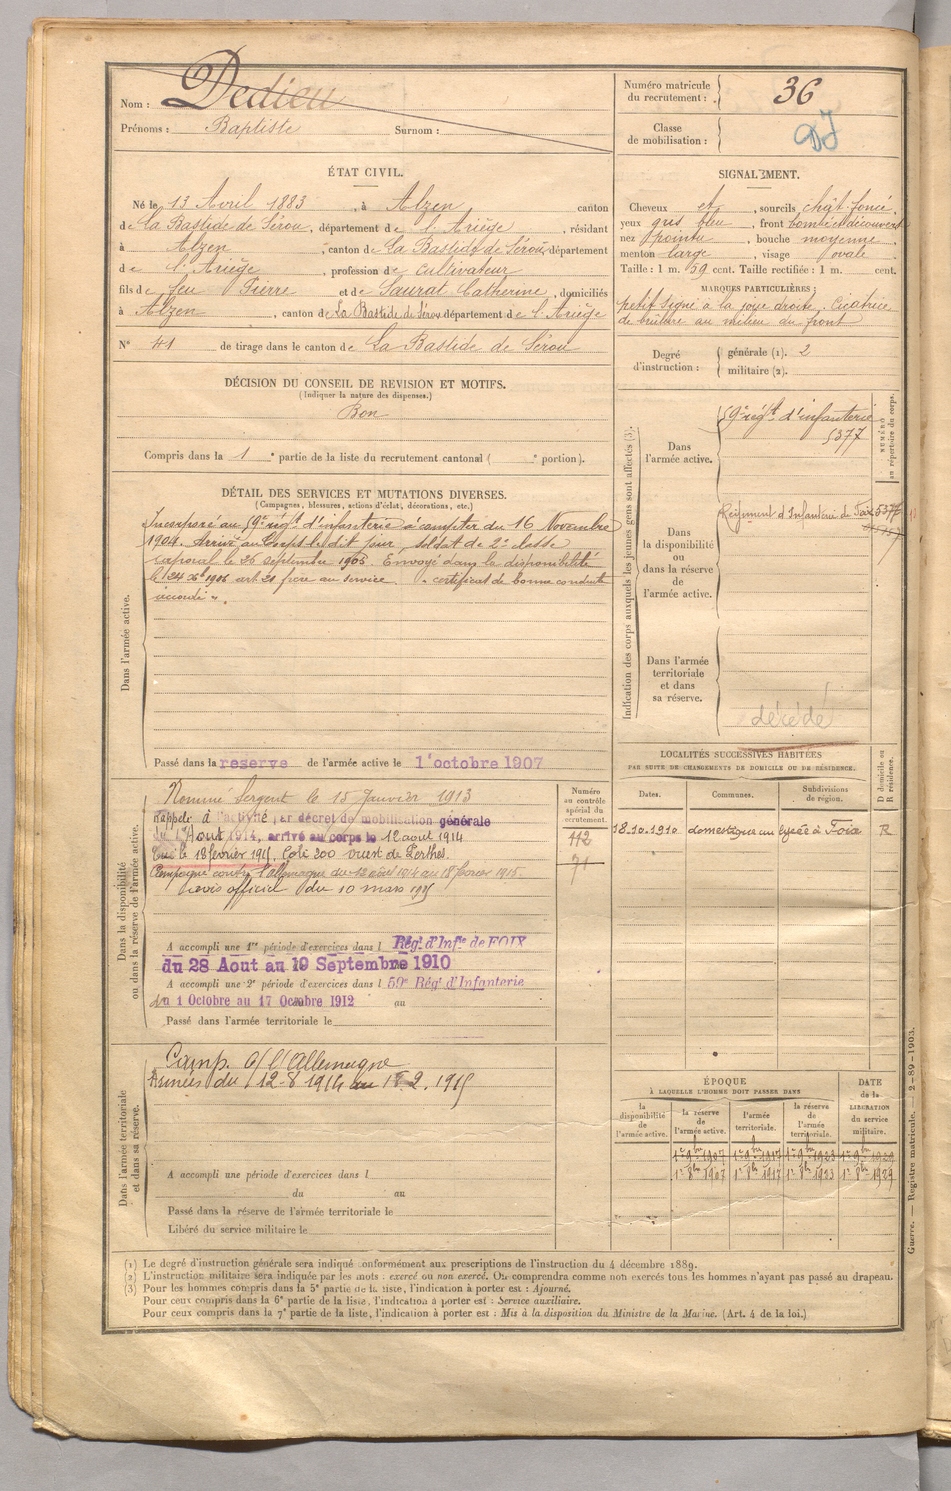 Nom : Dedieu
Prénoms : Baptiste Surnom :
Numéro matricule du recrutement : 36
Classe de mobilisation :
ÉTAT CIVIL.
Né le 13 Avril 1883, à Alzen canton
de La Bastide de Sérou, département de l'Ariège, résidant
à Alzen, canton de La Bastide de Sérou, département
de l'Ariège, profession de cultivateur
fils de feu Pierre et de Saurat Catherine, domiciliés
à Alzen, canton de La Bastide de Sérou département de l'Ariège
N° 41 de tirage dans le canton de La Bastide de Sérou
SIGNALEMENT.
Cheveux et, sourcils chât. foncé,
yeux gris bleu, front bombé et découvert
nez pointu, bouche moyenne,
menton large, visage ovale
Taille : 1 m. 59 cent. Taille rectifiée : 1 m. cent.
MARQUES PARTICULIÈRES :
petit signe à la joue droite. Cicatrice
de brûlure au milieu du front
Degré d'instruction : générale (1). 2
militaire (2).
DÉCISION DU CONSEIL DE REVISION ET MOTIFS.
(Indiquer la nature des dispenses.)
Bon
Compris dans la 1e partie de la liste du recrutement cantonal ( e portion).
DÉTAIL DES SERVICES ET MUTATIONS DIVERSES.
(Campagnes, blessures, actions d'éclat, décorations, etc.)
Dans l'armée active.
Incorporé au 59e régt d'infanterie à compter du 16 Novembre
1904. Arrivé au Corps le dit jour, soldat de 2e classe
caporal le 26 septembre 1905. Envoyé dans la disponibilité
art. 21 frère au service. "certificat de bonne conduite
accordé".
Passé dans la reserve de l'armée active le 1er octobre 1907
Indication des corps auxquels les jeunes gens sont affectés (3).
NUMÉRO au répertoire du corps.
Dans l'armée active.
59e régt d'infanterie
5377
Dans la disponibilité ou dans la réserve de l'armée active.
Régiment d'Infanterie de Foix 5377
Dans l'armée territoriale et dans sa réserve.
décédé
Dans la disponibilité ou dans la réserve de l'armée active.
Numéro au contrôle spécial du recrutement.
112
71
Nommé Sergent le 15 Janvier 1913
Rappelé à l'activité par décret de mobilisation générale
du 1er Aout 1914, arrivé au corps le 12 aout 1914
Tué le 18 février 1915, Cote 200 ouest de Perthes.
Campagne contre l'allemagne du 12 août 1914 au 18 février 1915.
avis officiel du 10 mars 1915
A accompli une 1re période d'exercices dans l Régt d'Infie de FOIX
du 28 Aout au 19 Septembre 1910
A accompli une 2e période d'exercices dans l 59e Régt d'Infanterie
du 1 Octobre au 17 Octobre 1912 au
Passé dans l'armée territoriale le
LOCALITÉS SUCCESSIVES HABITÉES
PAR SUITE DE CHANGEMENTS DE DOMICILE OU DE RÉSIDENCE.
D domicile ou R résidence.
Dates. Communes. Subdivisions de région.
18.10.1910 domestique au lycée à Foix R
Dans l'armée territoriale et dans sa réserve.
Camp. c/ l'Allemagne
Années du 12-8 1914 au 18 2. 1915
A accompli une période d'exercices dans l
du au
Passé dans la réserve de l'armée territoriale le
Libéré du service militaire le
ÉPOQUE
À LAQUELLE L'HOMME DOIT PASSER DANS
DATE de la LIBÉRATION du service militaire.
la disponibilité de l'armée active. la réserve de l'armée active. l'armée territoriale. la réserve de l'armée territoriale.
1er 9bre 1907 1er 9bre 1917 1er 9bre 1923 1er 9bre 1929
1er 8bre 1907 1er 8bre 1917 1er 8bre 1923 1er 8bre 1929
(1) Le degré d'instruction générale sera indiqué conformément aux prescriptions de l'instruction du 4 décembre 1889.
(2) L'instruction militaire sera indiquée par les mots : exercé ou non exercé. On comprendra comme non exercés tous les hommes n'ayant pas passé au drapeau.
(3) Pour les hommes compris dans la 5e partie de la liste, l'indication à porter est : Ajourné.
Pour ceux compris dans la 6e partie de la liste, l'indication à porter est : Service auxiliaire.
Pour ceux compris dans la 7e partie de la liste, l'indication à porter est : Mis à la disposition du Ministre de la Marine. (Art. 4 de la loi.)
Guerre. — Registre matricule. — 2-89-1903.